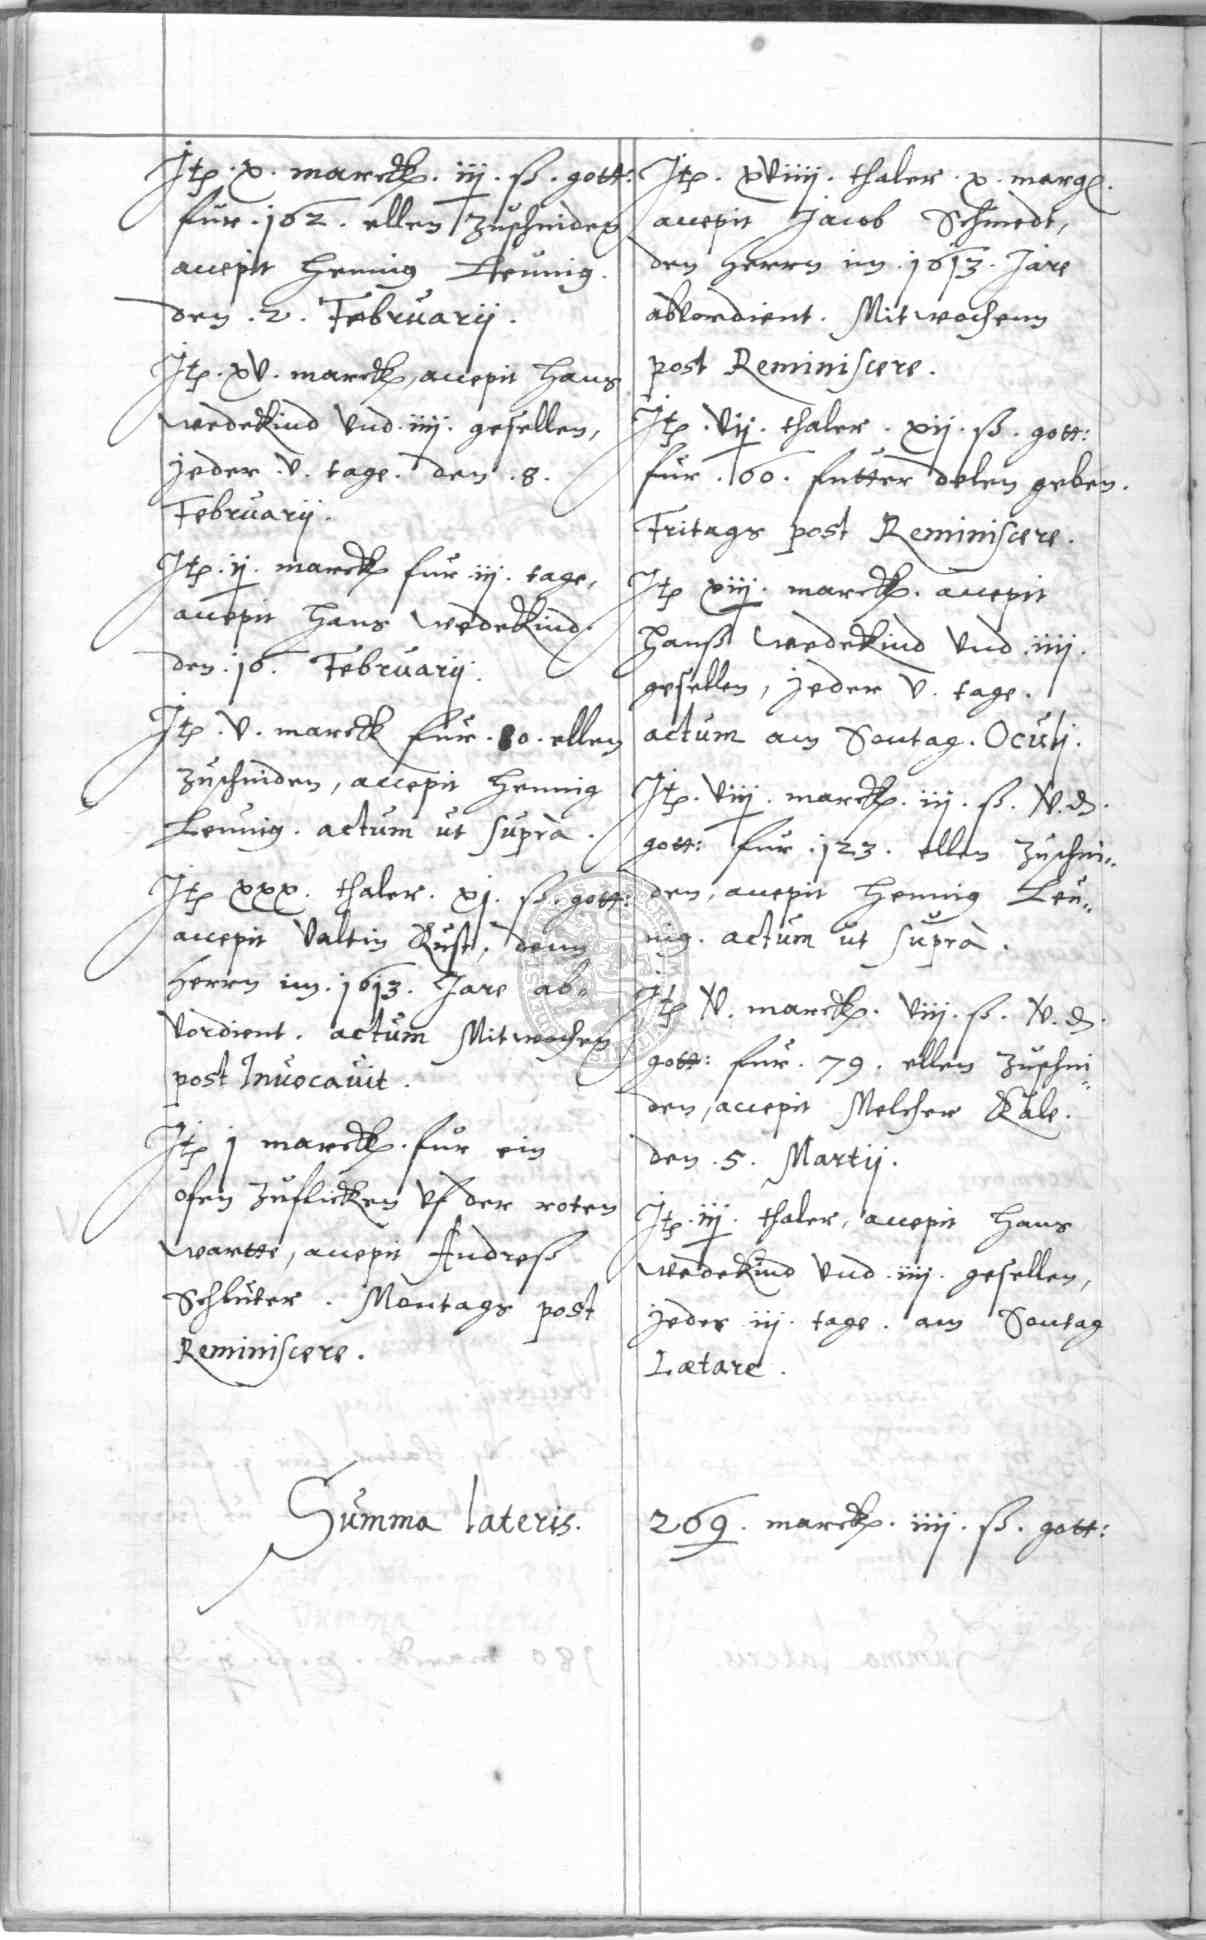 Itp. x. marck. iij. ß. gott:
für. 162. ellen zuschniden
accepit Hennig Leunig.
den. 2. Februarij.
Itp. xv. marck, accepit Hans
wedekind vnd. iiij. gesellen,
jeder. v. tage. den. 8.
Februarij.
Itp. ij. marck für. iij. tage,
accepit Hans wedekind.
den. 16. Februarij.
Itp. v. marck für. 80. ellen
zuschniden, accepit Hennig
Leunig. actum ut suprà.
Itp xxx. thaler. xj. ß. gott:
accepit Valtin Rust, denn
Herrn im. 1613. Jare ab„
vordient. actum Mitwochen
post Invocavit.
Itp j marck. für ein
ofen zuflicken vf der roten
wartte, accepit Andreß
Schlüter. Montags post
Reminiscere.
Itp. xviiij. thaler. x. marg.
accepit Jacob Schmedt,
den Herrn im. 1613. Jare
abvordient. Mitwochenn
post Reminiscere.
Itp. vij. thaler. xij. ß. gott:
für. 60. futter delen geben.
Fritags post Reminiscere.
Itp xiij. marck. accepit
Hanß wedekind vnd. iiij.
gesellen, jeder v. tage.
actum am Sontag. Oculj.
Itp. viij. marck. iij. ß. iv. ₰.
gott: für. 123. ellen zuschni„
den, accepit Hennig Leu„
nig. actum ut suprà.
Itp iv. marck. viij. ß. iv. ₰.
gott: für. 79. ellen zuschni„
den, accepit Melcher Kale.
den. 5. Martij.
Itp. iij. thaler, accepit Hans
wedekind vnd. iiij. gesellen,
jeder iij. tage. am Sontag
Lætare.
Summa lateris. 269. marck. iiij. ß. gott: